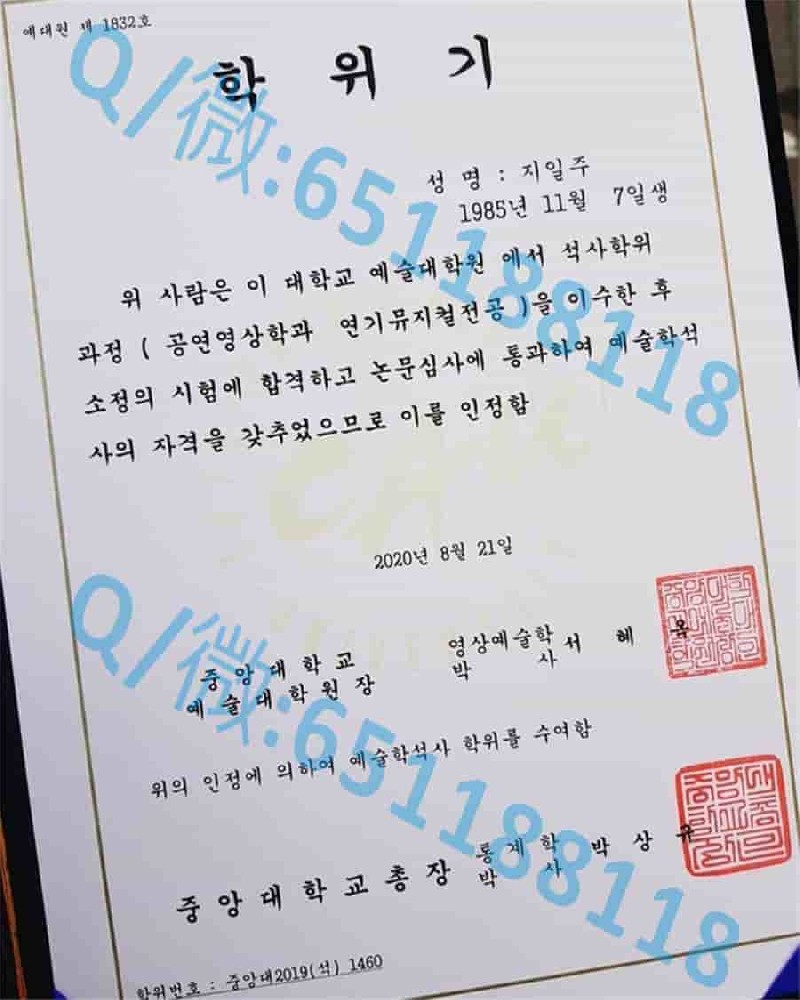 예대원 제 1832호
학 위 기
성 명 : 지일주
1985년 11월 7일생
위 사람은 이 대학교 예술대학원 에서 석사학위
과정 ( 공연영상학과 연기뮤지컬전공 )을 이수한 후
소정의 시험에 합격하고 논문심사에 통과하여 예술학석
사의 자격을 갖추었으므로 이를 인정함
2020년 8월 21일
중 앙 대 학 교
예 술 대 학 원 장
영상예술학
박 사
서 혜 옥
위의 인정에 의하여 예술학석사 학위를 수여함
중 앙 대 학 교 총 장
통 계 학
박 사
박 상 규
학위번호 : 중앙대2019(석) 1460
Q/微:651188118
Q/微:651188118